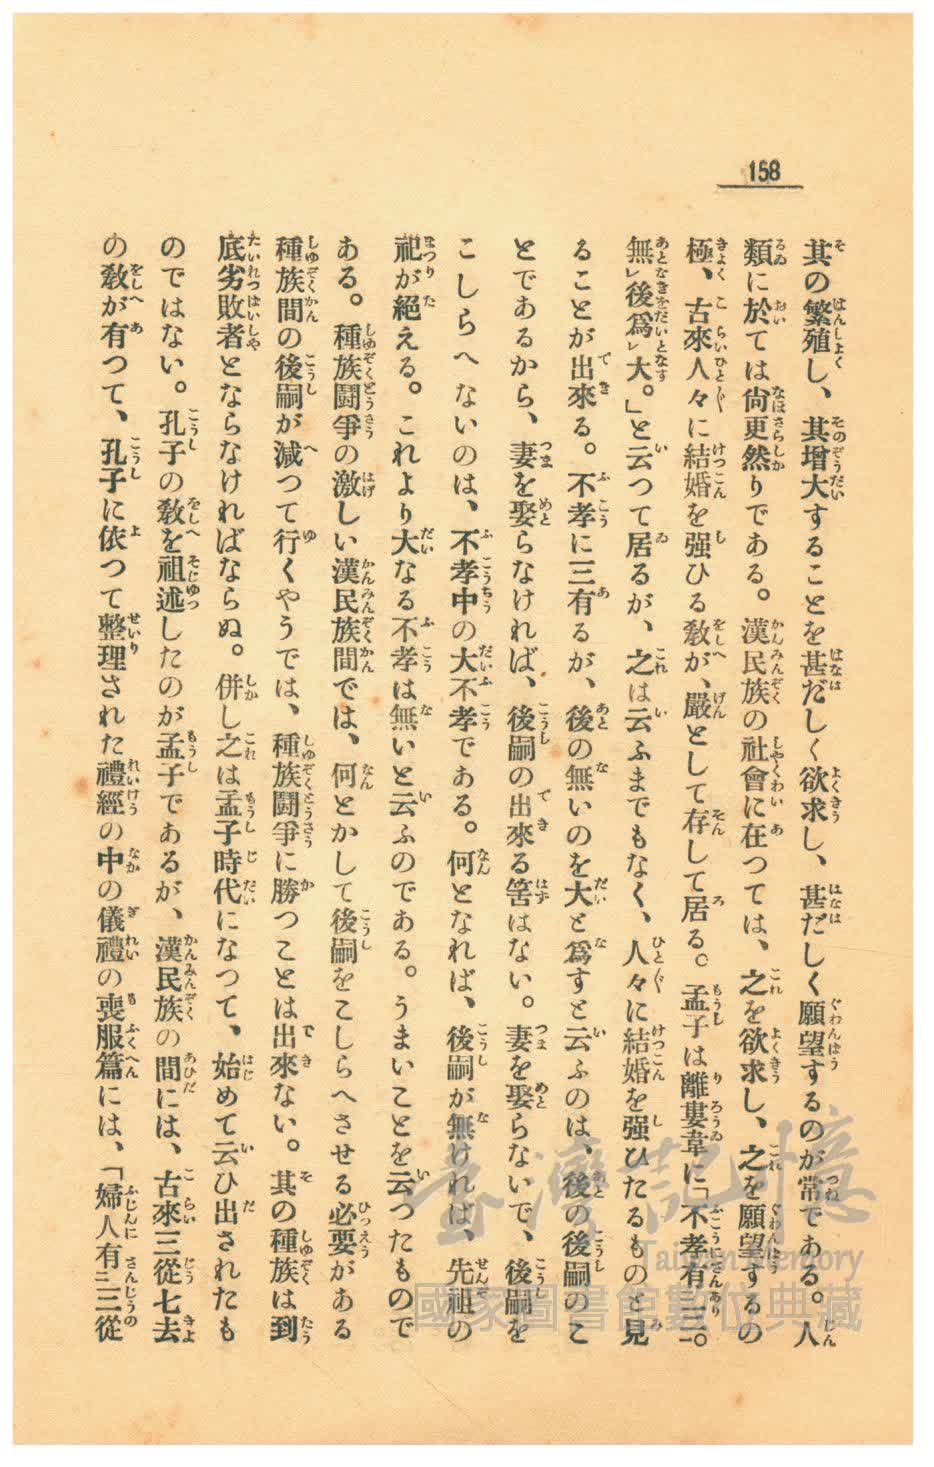 158
其の繁殖し、其增大することを甚だしく欲求し、甚だしく願望するのが常である。人
類に於ては尙更然りである。漢民族の社會に在つては、之を欲求し、之を願望するの
極、古來人々に結婚を强ひる敎が、嚴として存して居る。孟子は離婁章に「不孝有㆑三。
無㆑後爲㆑大。」と云つて居るが、之は云ふまでもなく、人々に結婚を强ひたるものと見
ることが出來る。不孝に三有るが、後の無いのを大と爲すと云ふのは、後の後嗣のこ
とであるから、妻を娶らなければ、後嗣の出來る筈はない。妻を娶らないで、後嗣を
こしらへないのは、不孝中の大不孝である。何となれば、後嗣が無ければ、先祖の
祀が絕える。これより大なる不孝は無いと云ふのである。うまいことを云つたもので
ある。種族鬪爭の激しい漢民族間では、何とかして後嗣をこしらへさせる必要がある
種族間の後嗣が減つて行くやうでは、種族鬪爭に勝つことは出來ない。其の種族は到
底劣敗者とならなければならぬ。併し之は孟子時代になつて、始めて云ひ出されたも
のではない。孔子の敎を祖述したのが孟子であるが、漢民族の間には、古來三從七去
の敎が有つて、孔子に依つて整理された禮經の中の儀禮の喪服篇には、「婦人有㆓三從
臺灣記憶
Taiwan Memory
國家圖書館數位典藏